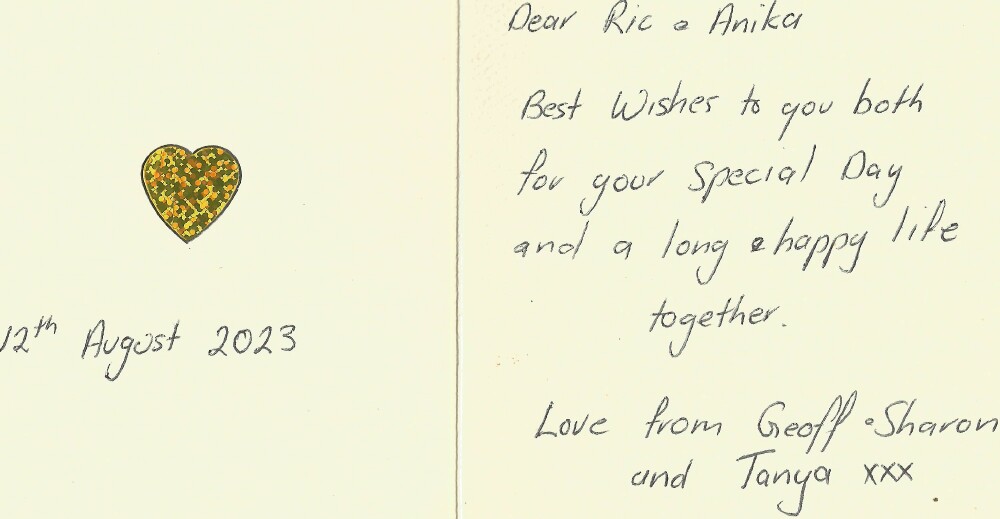 12th August 2023
Dear Ric & Anika
Best Wishes to you both
for your Special Day
and a long & happy life
together.
Love from Geoff & Sharon
and Tanya xxx